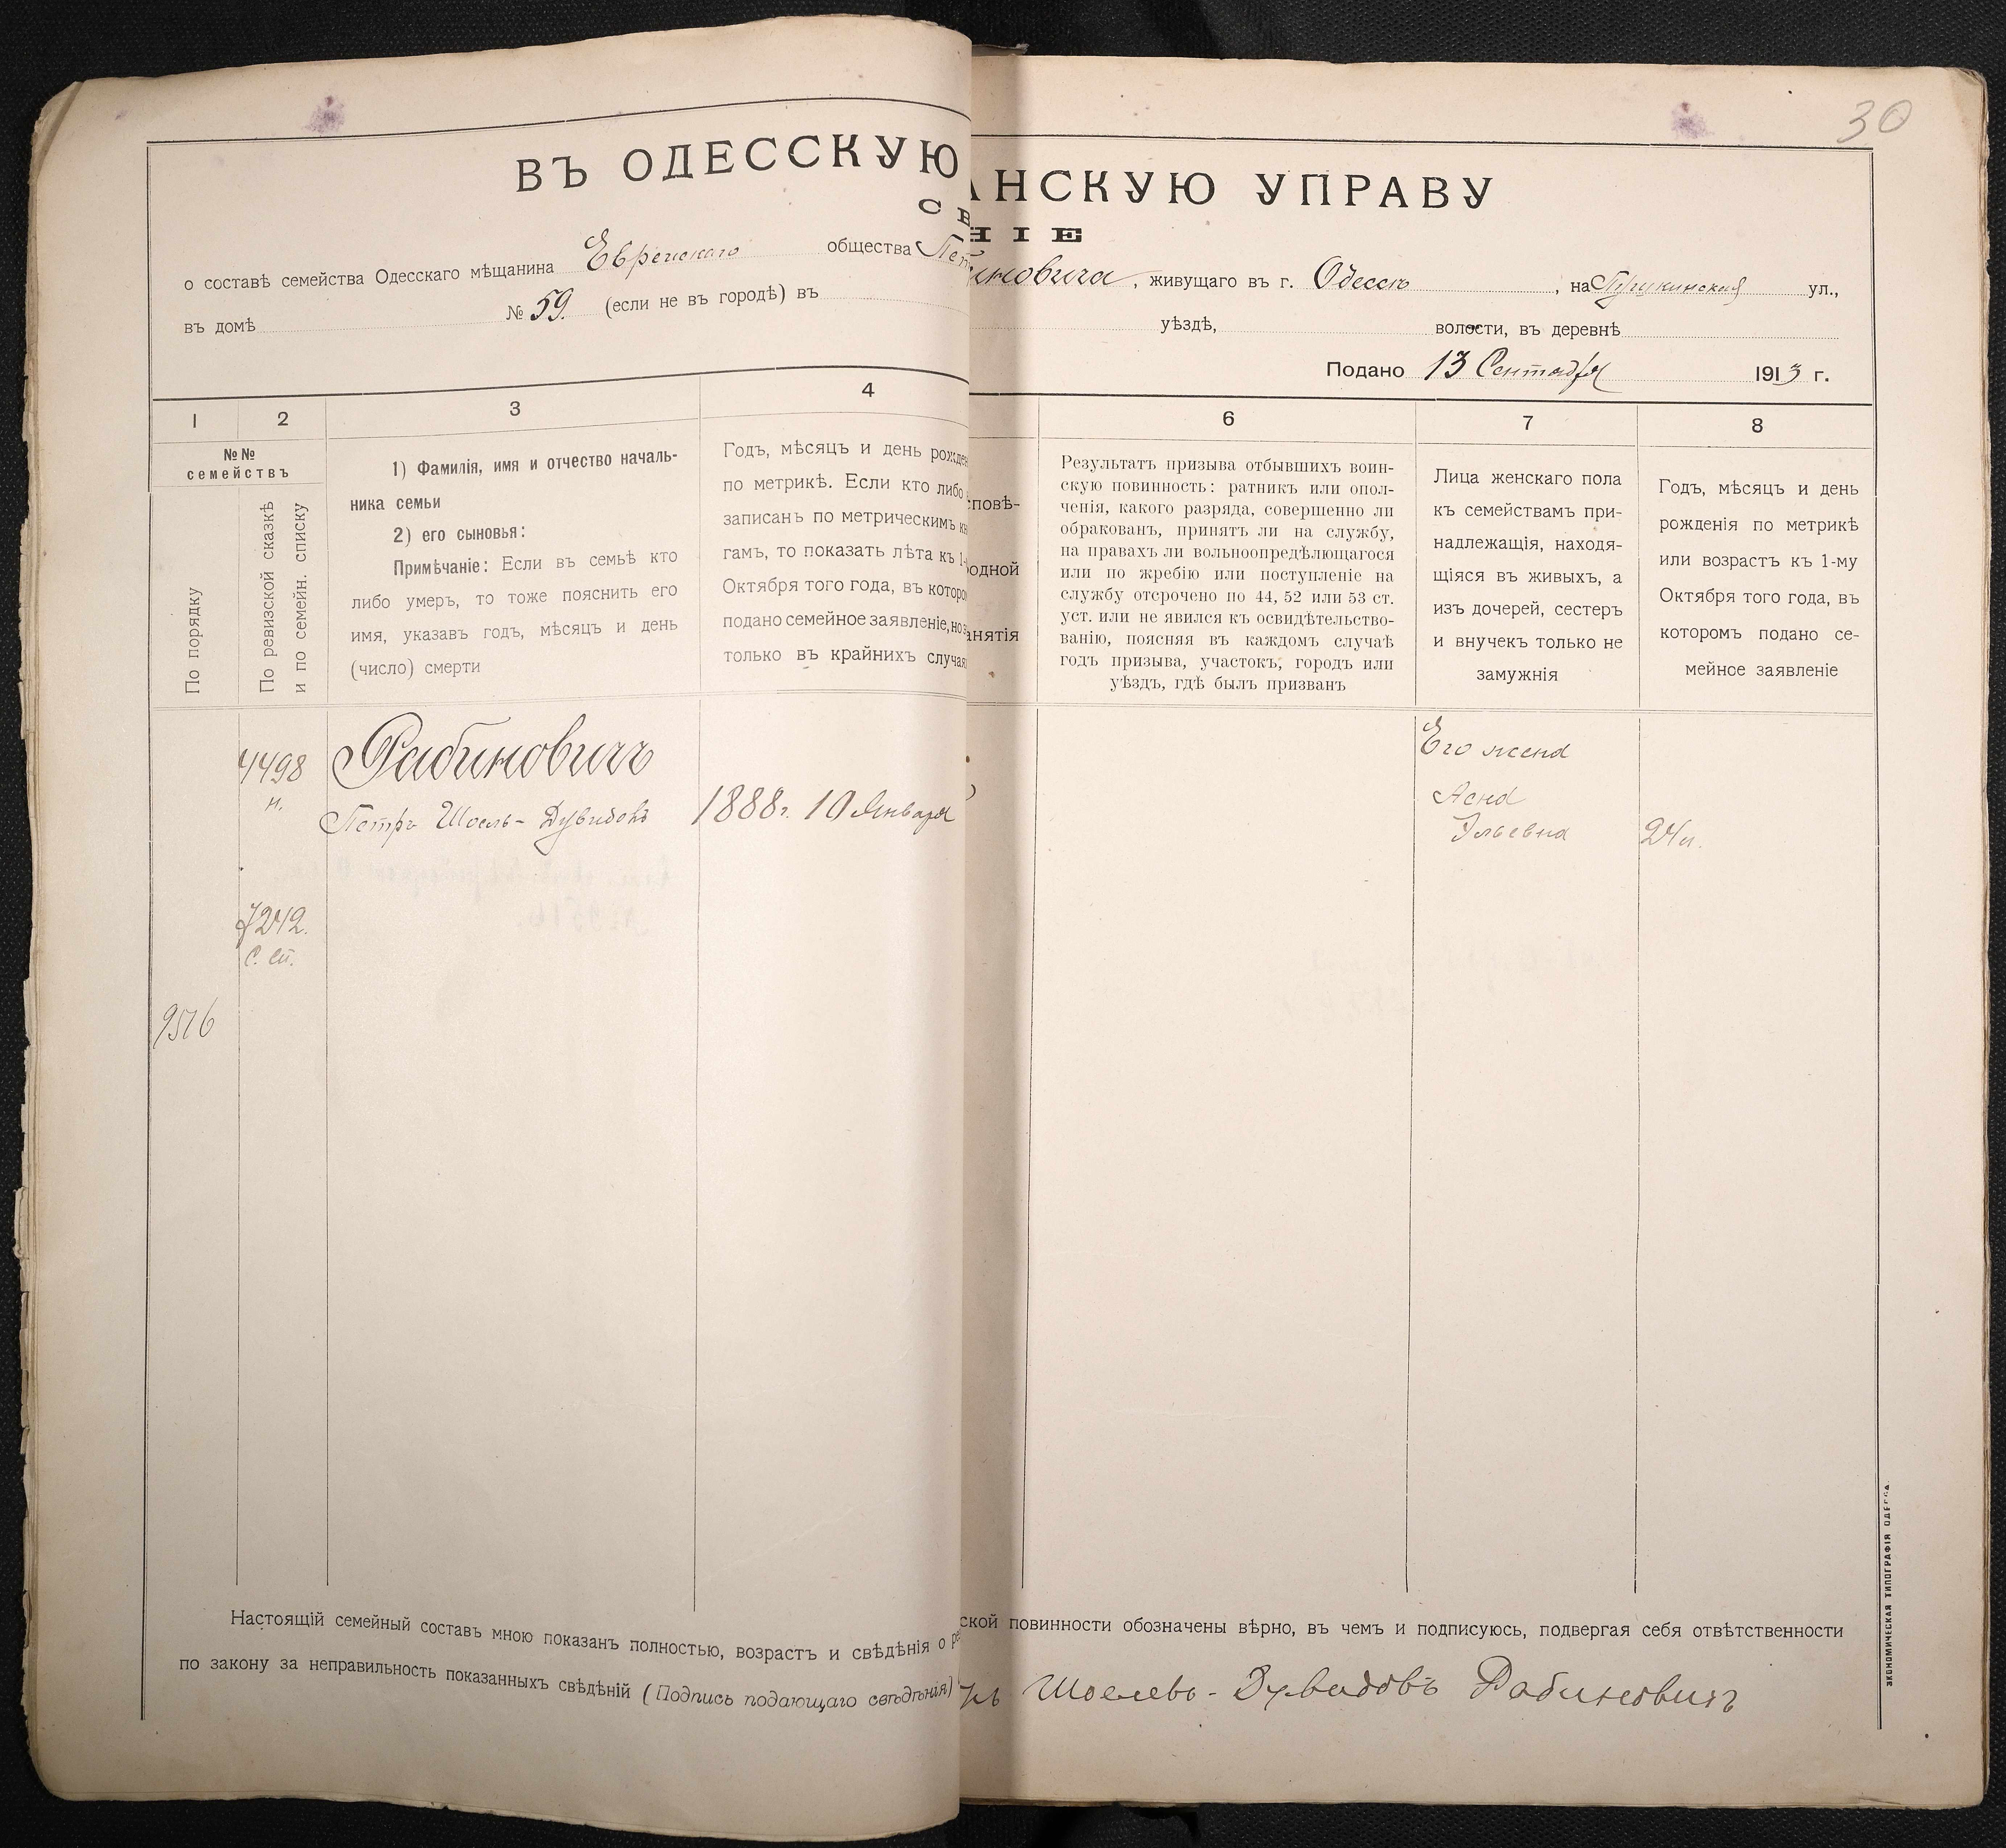 30
ВЪ ОДЕССКУЮ
АНСКУЮ УПРАВУ
СВ
НІЕ
о составѣ семейства Одесскаго мѣщанина Еврейскаго общества Пет
иновича, живущаго въ г. Одессѣ, на Пушкинская ул.,
въ домѣ № 59. (если не въ городѣ) въ
уѣздѣ, волости, въ деревнѣ
Подано 13 Сентября 1913 г.
1
2
3
4
6
7
8
№№
семействъ
По порядку
По ревизской сказкѣ
и по семейн. списку
1) Фамилія, имя и отчество началь-
ника семьи
2) его сыновья:
Примѣчаніе: Если въ семьѣ кто
либо умеръ, то тоже пояснить его
имя, указавъ годъ, мѣсяцъ и день
(число) смерти
Годъ, мѣсяцъ и день рожден
по метрикѣ. Если кто либо
записанъ по метрическимъ кн
гамъ, то показать лѣта къ 1-
Октября того года, въ которо
подано семейное заявленіе, но э
только въ крайнихъ случая
сповѣ-
одной
анятія
Результатъ призыва отбывшихъ воин-
скую повинность: ратникъ или опол-
ченія, какого разряда, совершенно ли
обракованъ, принятъ ли на службу,
на правахъ ли вольноопредѣляющагося
или по жребію или поступленіе на
службу отсрочено по 44, 52 или 53 ст.
уст. или не явился къ освидѣтельство-
ванію, поясняя въ каждомъ случаѣ
годъ призыва, участокъ, городъ или
уѣздъ, гдѣ былъ призванъ
Лица женскаго пола
къ семействамъ при-
надлежащія, находя-
щіяся въ живыхъ, а
изъ дочерей, сестеръ
и внучекъ только не
замужнія
Годъ, мѣсяцъ и день
рожденія по метрикѣ
или возрастъ къ 1-му
Октября того года, въ
которомъ подано се-
мейное заявленіе
4498
н.
Рабиновичъ
Петръ Шоель-Дувидовъ
1888г. 10 Января
Его жена
Асна
Эльевна
24л.
7242.
С. сп.
9516
Настоящій семейный составъ мною показанъ полностью, возрастъ и свѣдѣнія о ре
ской повинности обозначены вѣрно, въ чемъ и подписуюсь, подвергая себя отвѣтственности
по закону за неправильность показанныхъ свѣдѣній (Подпись подающаго свѣдѣнія)
Шоелевъ-Дувидовъ Рабиновичъ
ЭКОНОМИЧЕСКАЯ ТИПОГРАФІЯ ОДЕССА